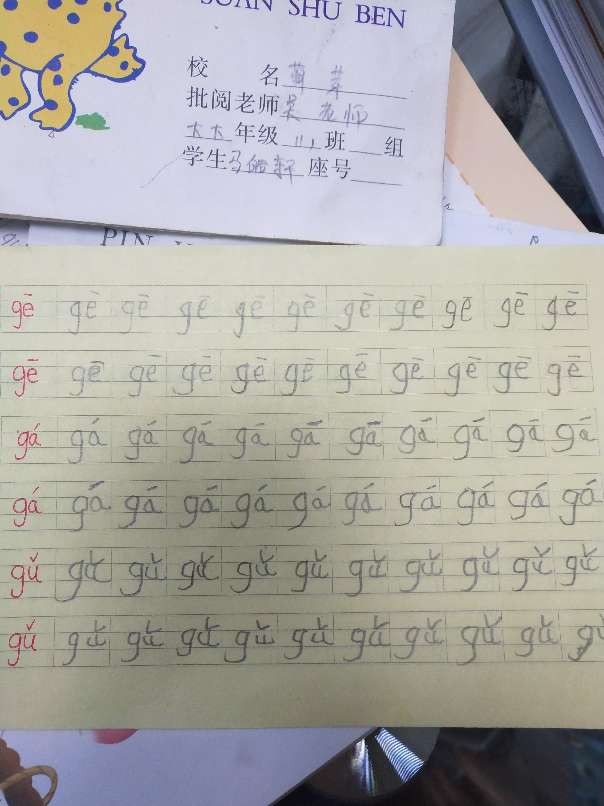 SUAN SHU BEN
校 名 萌芽
批阅老师 吴老师
大大 年级 11, 班 组
学生 马 轩 座号
PIN
gē gē gē gē gē gē gē gē gē gē gē
gē gē gē gē gē gē gē gē gē gē gē
gá gá gá gá gá gá gá gá gá gá gá
gá gá gá gá gá gá gá gá gá gá gá
gǔ gǔ gǔ gǔ gǔ gǔ gǔ gǔ gǔ gǔ gǔ
gǔ gǔ gǔ gǔ gǔ gǔ gǔ gǔ gǔ gǔ gǔ